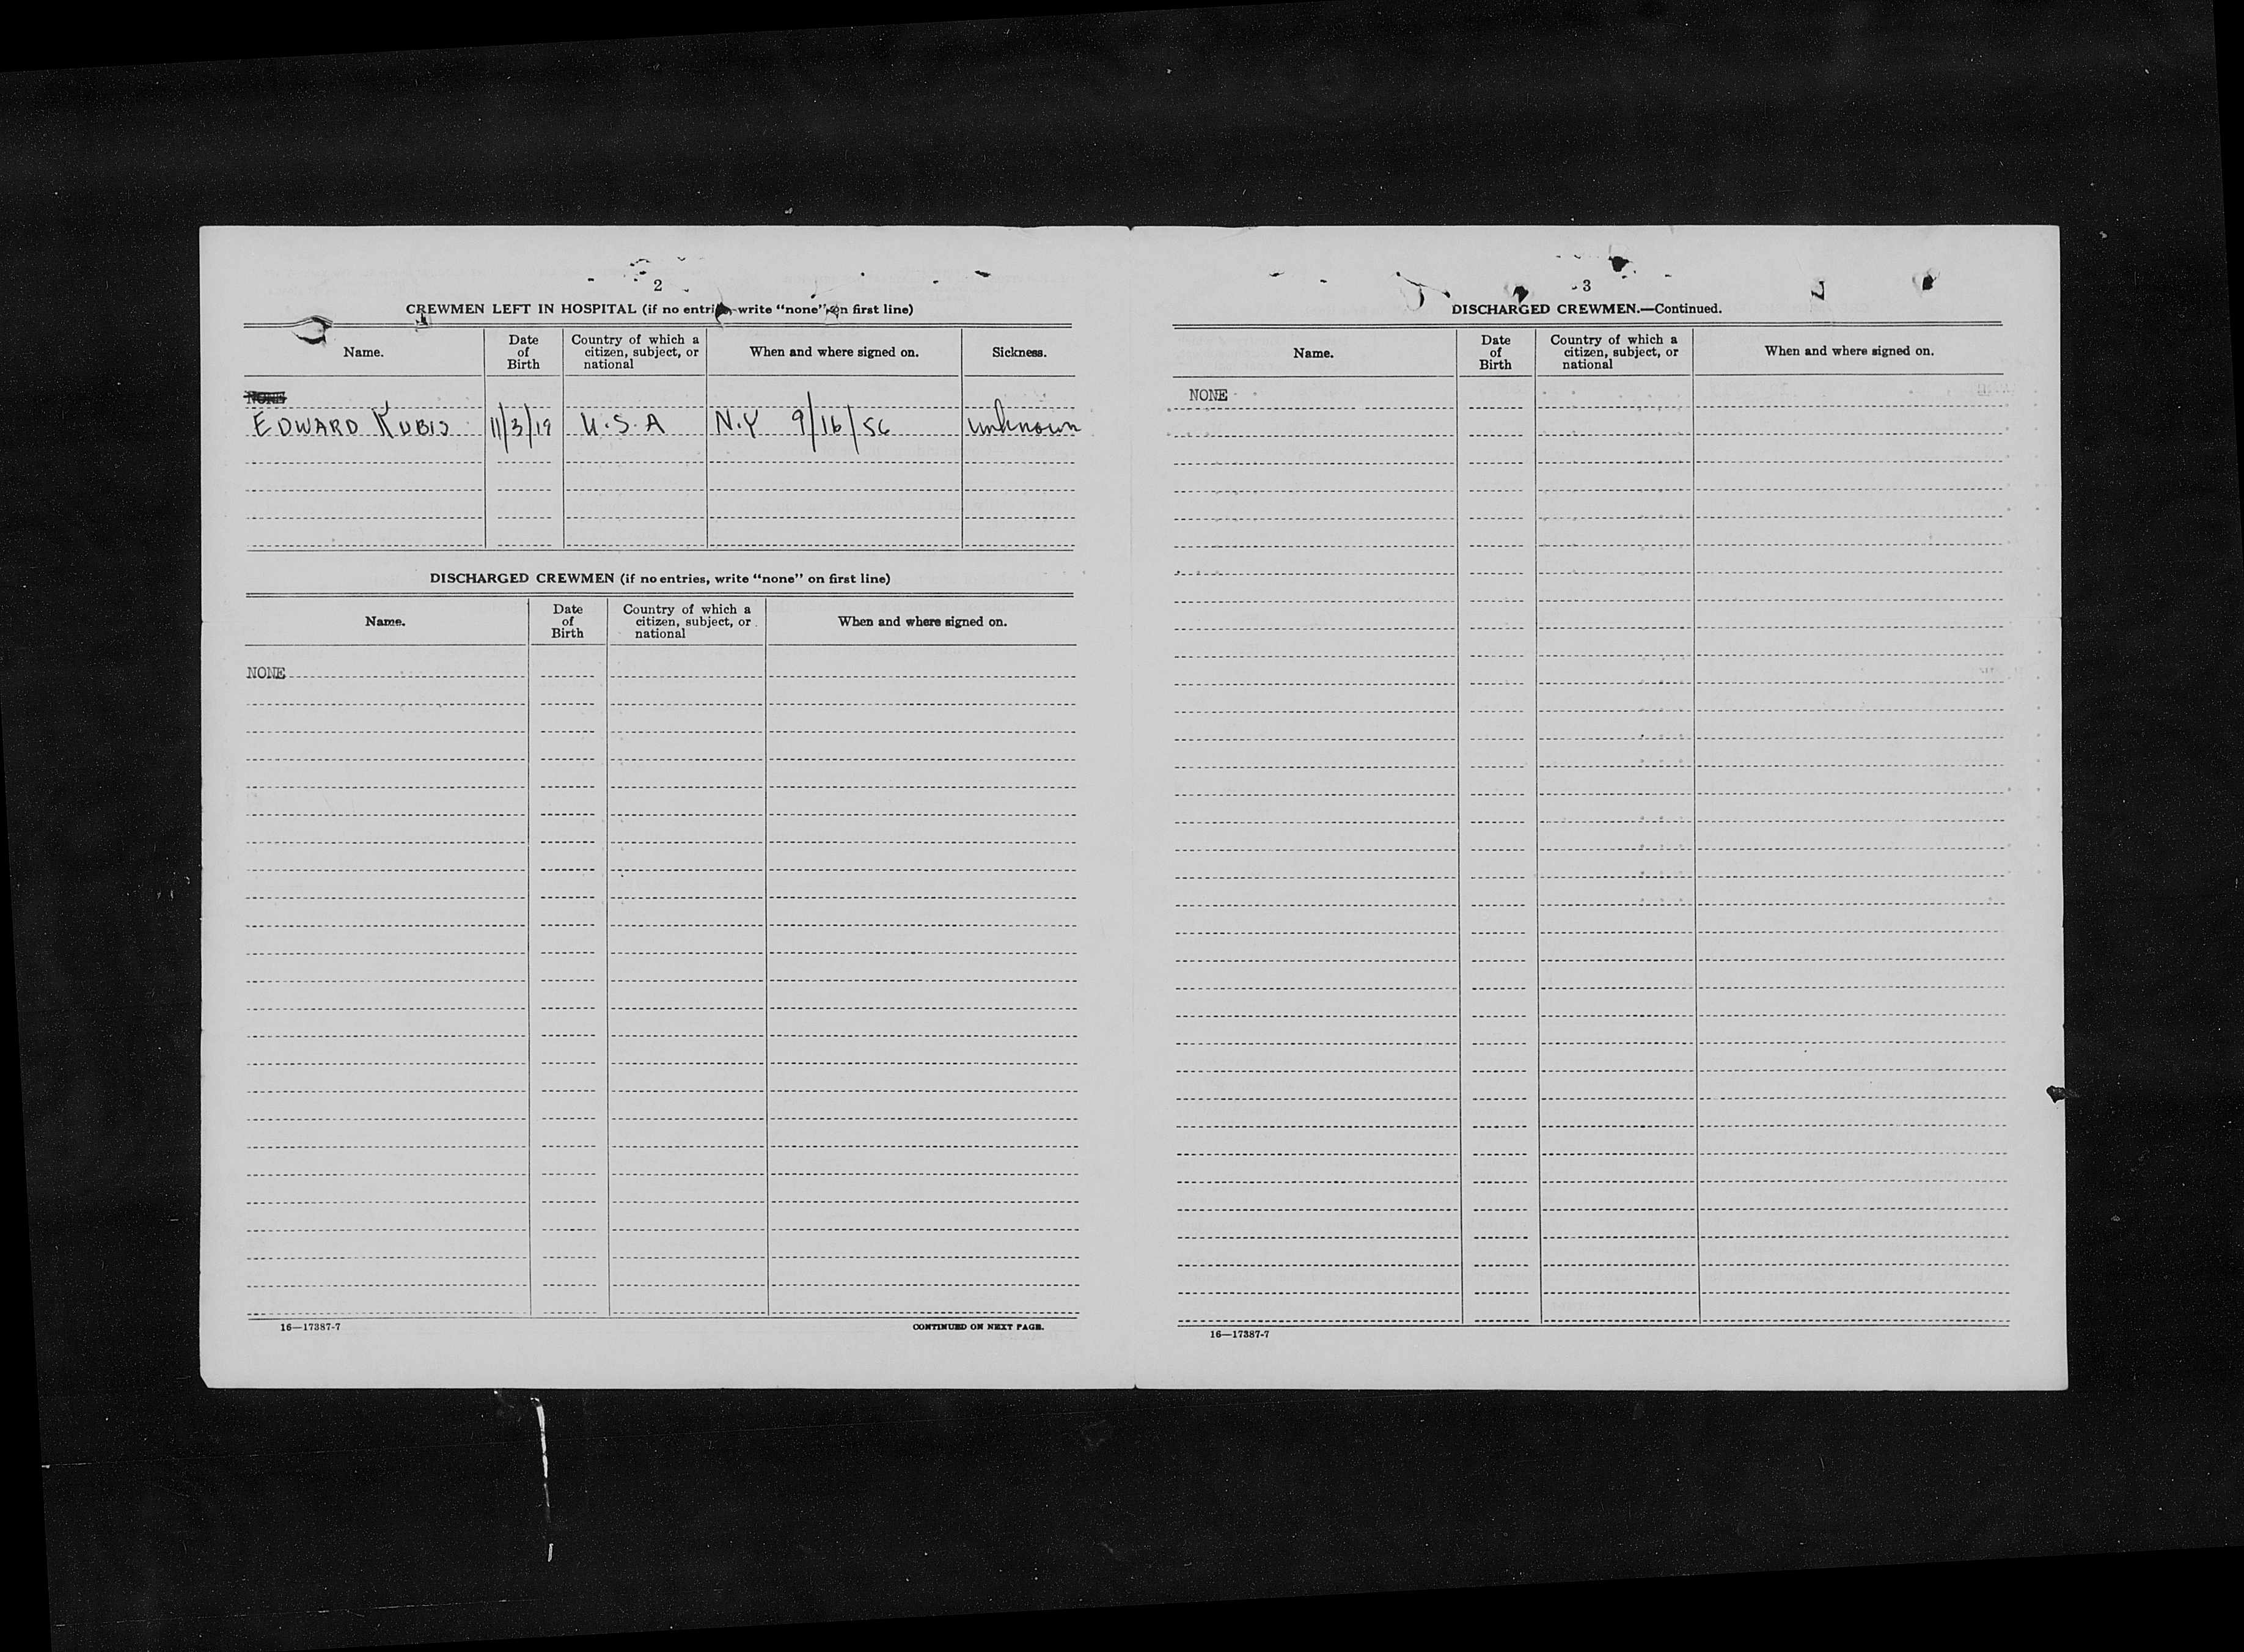 2
CREWMEN LEFT IN HOSPITAL (if no entries, write “none” on first line)
Name. Date of Birth Country of which a citizen, subject, or national When and where signed on. Sickness.
NONE
EDWARD KUBIS 11/3/19 U.S.A N.Y 9/16/56 unknown
DISCHARGED CREWMEN (if no entries, write “none” on first line)
Name. Date of Birth Country of which a citizen, subject, or national When and where signed on.
NONE
16—17387-7 CONTINUED ON NEXT PAGE.
3
DISCHARGED CREWMEN.—Continued.
Name. Date of Birth Country of which a citizen, subject, or national When and where signed on.
NONE
16—17387-7